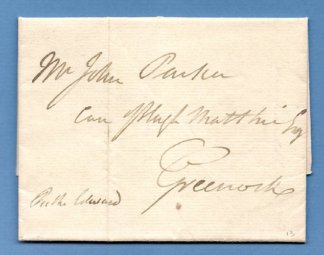 Mr John Parker
Care of Hugh Matthie Esq
Greenock
Per the Edward
13